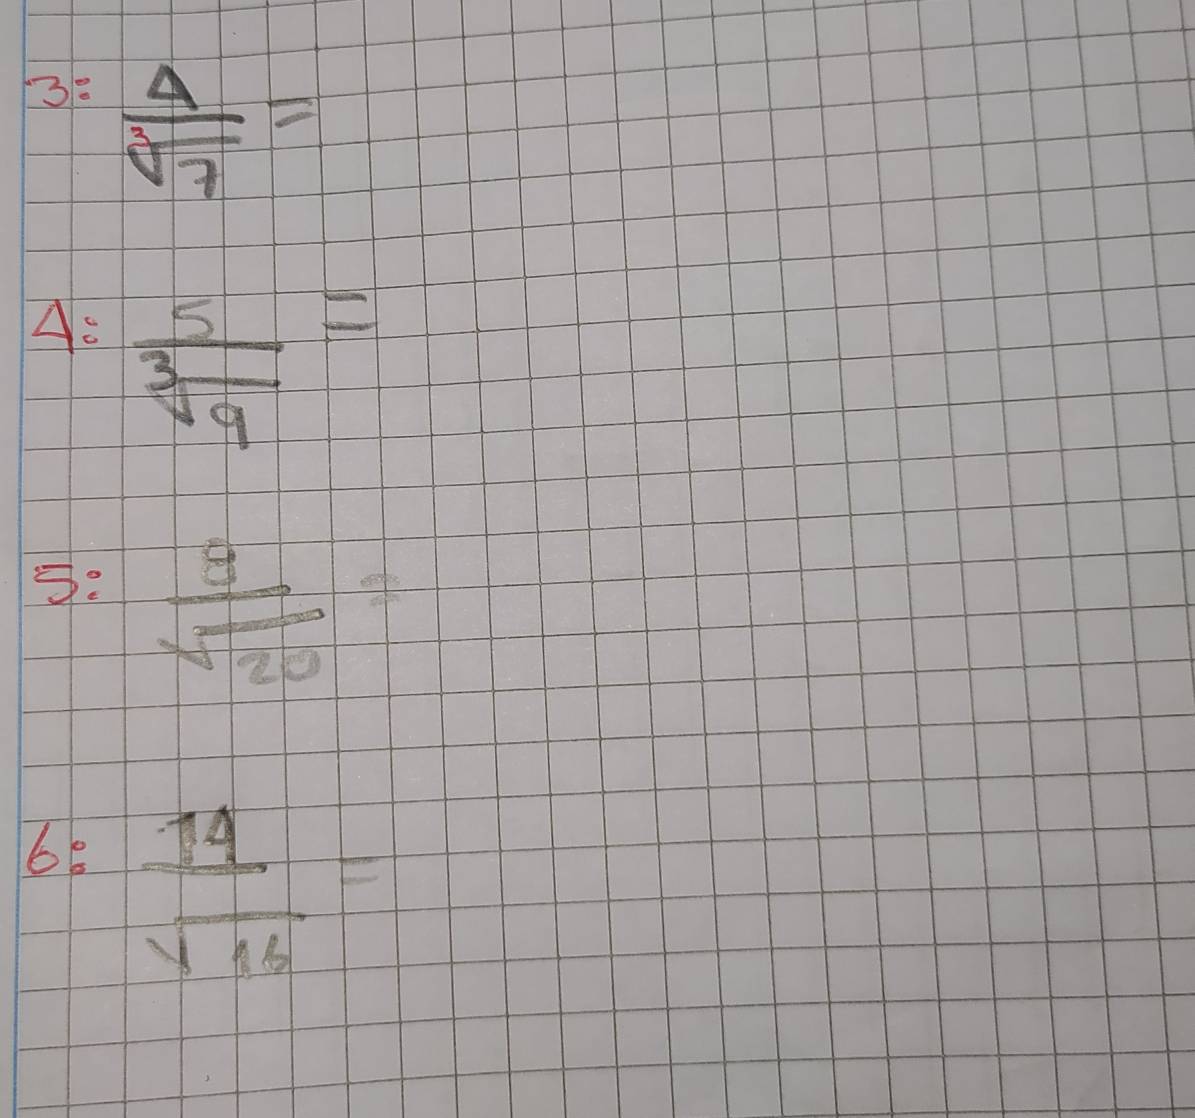 3: 4/∛7 =
4: 5/∛9 =
5: 8/√20 =
6: 14/√16 =